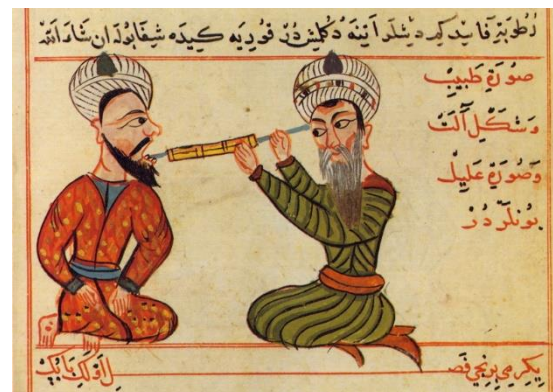 رُطُوبَتِ فَاسِد كِم دِشلَر اَتِنَه دُكُلمِش دُرْ قُورِدَيه كِيدَه شِفَا بُولَه اِن شَاءَ الله
صُورَةِ طَبِيبْ
وَشَكْلِ آلَتْ
وَصُورَةِ عَلِيلْ
بُونْلَرْ دُرْ
يِكِرمِي بِرِنجِي فَصـ ـل اَوَّلكِي بَابُكْ